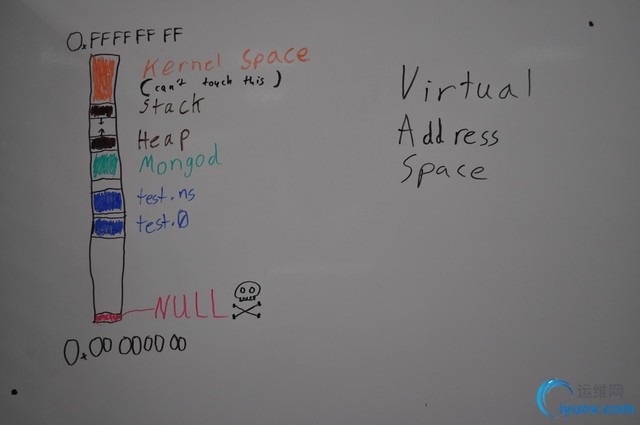 0xFFFFFFFF
Kernel Space
(can't touch this)
Stack
Heap
Mongod
test.ns
test.0
NULL
0x00000000
Virtual
Address
Space
运维网
iyunv.com